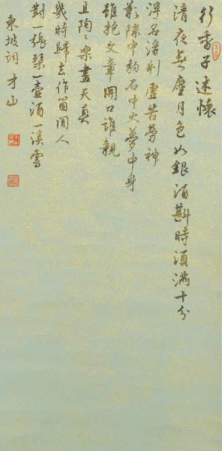 行香子述懷
清夜無塵月色如銀酒斟時須滿十分
浮名浮利虛苦勞神
歎隙中駒石中火夢中身
雖抱文章開口誰親
且陶々樂盡天真
幾時歸去作箇閒人
對一張琴一壺酒一溪雲
東坡詞 才山